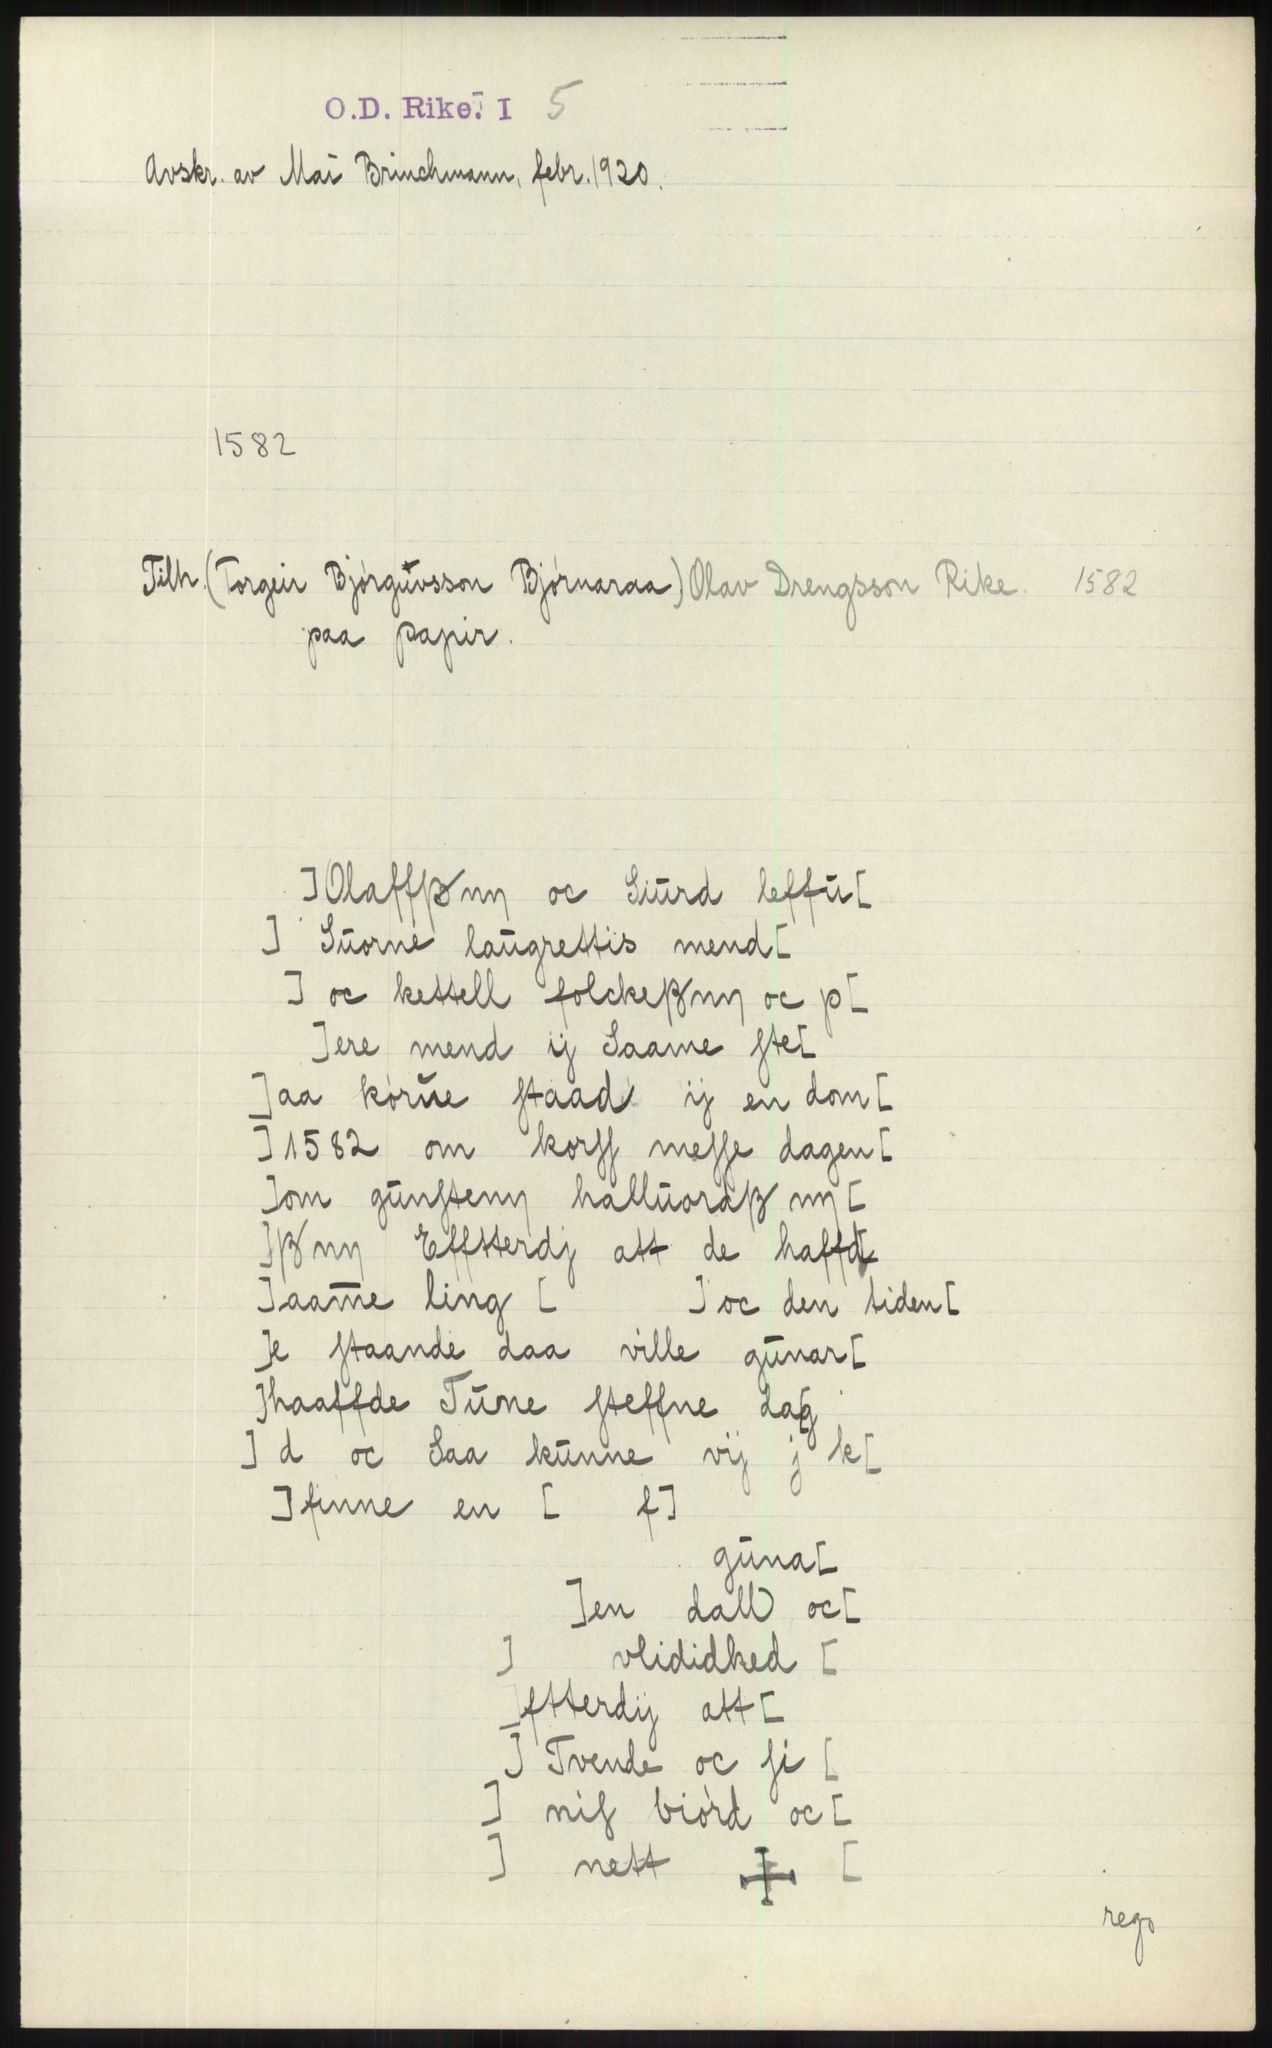 O.D. Rike. I 5
Avskr. av Mai Brinchmann, febr. 1920.
1582
Tilh. (Torgeir Bjórgŭvsson Bjórnaraa) Olav Drengsson Rike. 1582
paa papir.
]Olaffßnn oc Siŭrd leffŭ[
] Sŭorne laŭgrettis mend[
] oc kettell folckeßnn oc p[
]ere mend ij Saame ste[
]aa kórŭe staad ij en dom[
]1582 om korss messe dagen[
]om gŭnstenn hallŭordßnn[
]ßnn Effstterdj att de haffd[
]aame ling [ ] oc den tiden[
]e staande daa ville gŭnar[
]haaffde Tŭne steffne dag[
] d oc Saa kŭnne vij j k[
]finne en [ f]
gŭna[
]en dall oc[
] vlididked [
]ftterdij att[
] Tvende oc si [
] nis biórd oc[
] nett [
reg.